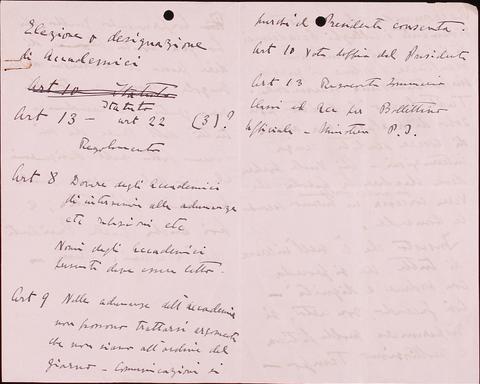 Elezione o designazione
di Accademici
Art 10 Statuto
Statuto
Art 13 – art 22 (3)?
Regolamento
Art 8 Dovere degli accademici
di intervenire alle adunanze
etc relazioni etc
Nomi degli accademici
presenti deve essere letto.
Art 9 Nelle adunanze dell'accademia
non possono trattarsi argomenti
che non siano all'ordine del
giorno – Comunicazioni si
purché il Presidente consenta.
Art 10 Voto doppio del Presidente
Art 13 Resoconto
classi ed per Bollettino
Ufficiale – Ministero P.I.